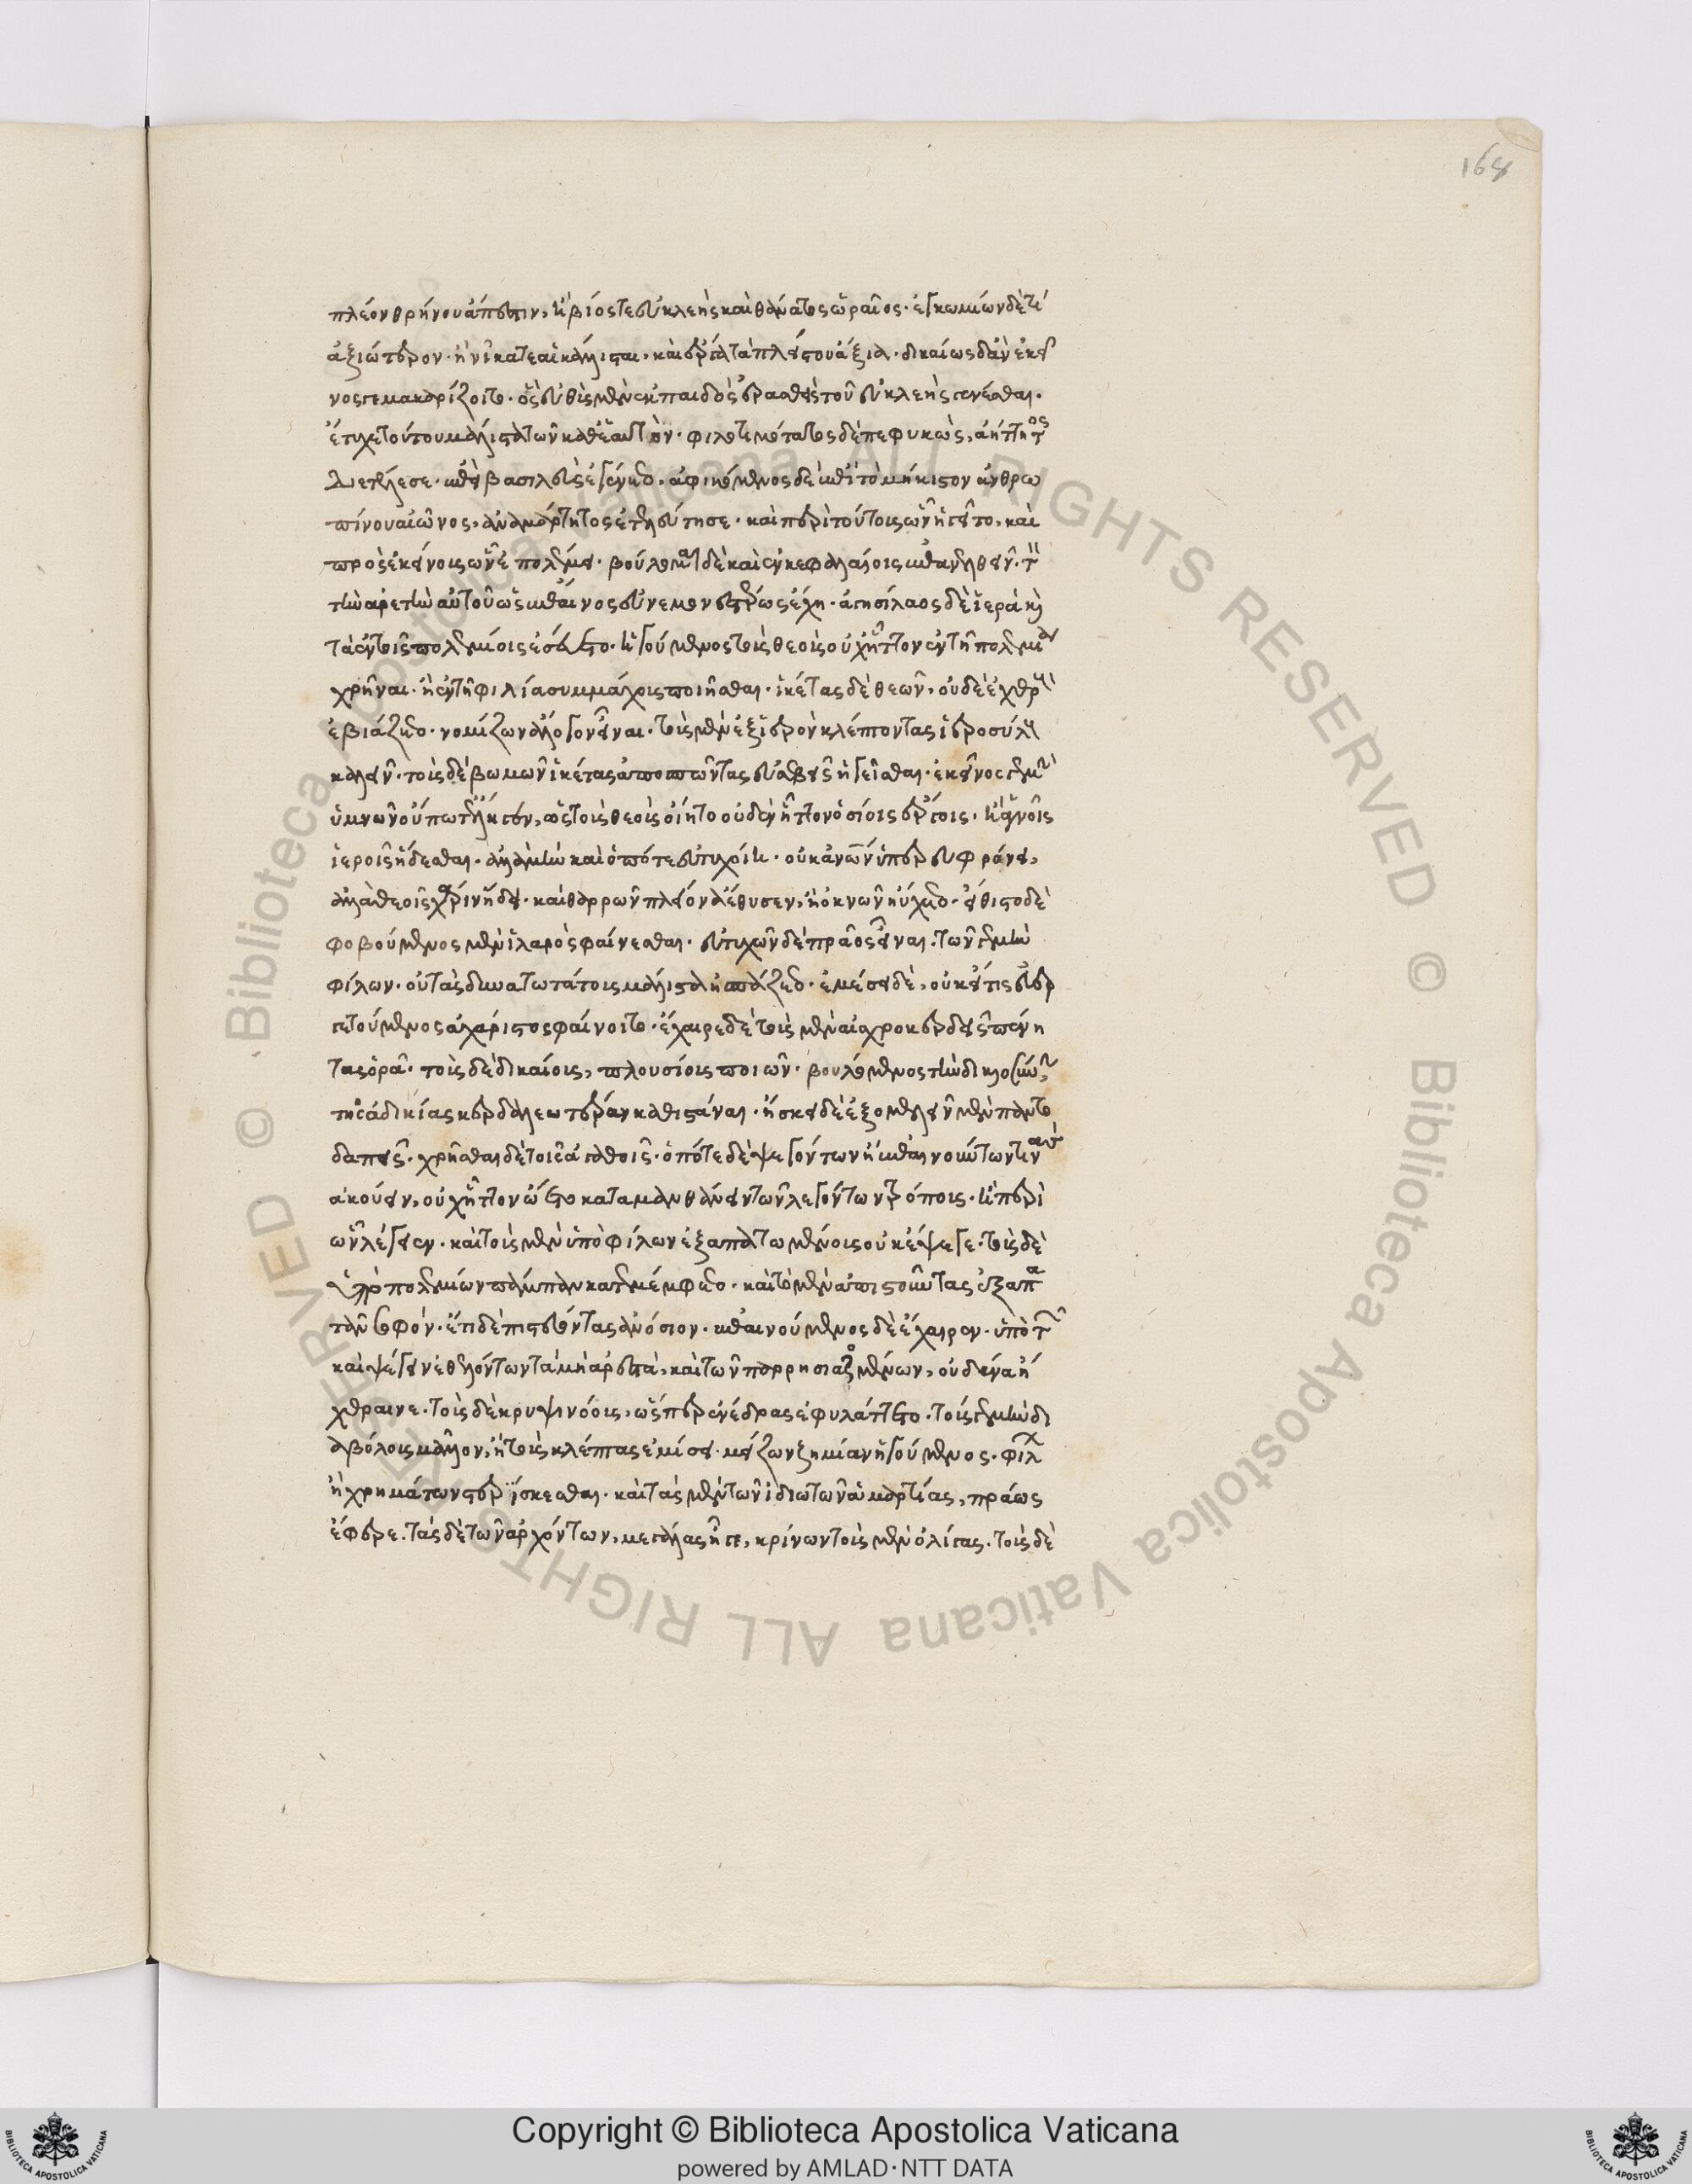 πλέον θρήνου ἄπεστιν, ἢ βίος τε εὐκλεὴς καὶ θάνατος ὡραῖος· ἐγκωμίων δὲ τί
ἀξιώτερον· ἢ νῖκαι τε αἱ κάλλισται· καὶ ἔργα τὰ πλείστου ἄξια· δικαίως δ' ἂν ἐκεῖ
νος γε μακαρίζοιτο· ὃς εὐθὺς μὲν ἐκ παιδὸς ἐρασθεὶς τοῦ εὐκλεὴς γενέσθαι.
ἔτυχε τούτου μάλιστα τῶν καθ' ἑαυτὸν· φιλοτιμότατος δὲ πεφυκὼς, ἀήττητος
διετέλεσε· ἐπεὶ βασιλεὺς ἐγένετο. ἀφικόμενος δὲ ἐπὶ τὸ μήκιστον ἀνθρω
πίνου αἰῶνος, ἀναμάρτητος ἐτελεύτησε· καὶ περὶ τούτοις ὧν ἡγεῖτο, καὶ
πρὸς ἐκείνοις ὧν ἐπολέμει· βούλομαι δὲ καὶ ἐν κεφαλαίοις ἐπανελθεῖν· τ
τὴν ἀρετὴν αὐτοῦ ὡς ἔπαινος εὐνεμονεστέρως ἔχη· ἀγησίλαος δὲ ἱερὰ καὶ
τὰ ἐν τοῖς πολεμίοις ἐσέβετο· ἡγούμενος τοῖς θεοὺς οὐχ ἧττον ἐν τῇ πολεμία
χρῆναι· ἢ ἐν τῇ φιλία συμμάχοις ποιῆσθαι· ἱκέτας δὲ θεῶν, οὐδὲ ἐχθροὺς
ἐβιάζετο· νομίζων ἄλογον εἶναι· τοὺς μὲν ἐξ ἱερὸν κλέπτοντας ἱεροσύλους
καλεῖν· τοὺς δὲ βωμῶν ἱκέτας ἀποσπῶντας εὐσεβεῖς ἡγεῖσθαι· ἐκεῖνος γε μὴν
ὑμνῶν οὔπωτ' ἔληγεν, ὡς τοὺς θεοὺς οἴητο οὐδὲν ἧττον ὁσίοις ἔργοις· ἢ ἁγνοῖς
ἱεροῖς ἥδεσθαι· ἀλλὰ μὴν καὶ ὁπότε εὐτυχοίη· οὐκ ἀνων ὑπερευφράνει,
ἀλλὰ θεοῖς χάριν ἤδει· καὶ θαρρῶν πλείονα ἔθυσεν, ἢ ὀκνῶν ηὔχετο· εἴθιστο δὲ
φοβούμενος μὲν ἱλαρὸς φαίνεσθαι· εὐτυχῶν δὲ πρᾶος εἶναι. τῶν γε μὴν
φίλων· οὐ τὰς δυνατωτάτοις μάλιστα ἠσπάζετο· ἐμίσει δὲ, οὐκ εἴ τις εὐερ
γετούμενος ἀχάριστος φαίνοιτο· ἔχαιρε δὲ τοὺς μὲν αἰσχροκερδεῖς πένη
τας ὁρᾶ· τοὺς δὲ δικαίοις, πλουσίοις ποιῶν· βουλόμενος τὴν δικαιοσύνην
τῆς ἀδικίας κερδαλεωτέραν καθιστάναι· ἤσκει δὲ ἐξομιλεῖν μὲν παντο
δαποῖς· χρῆσθαι δὲ τοῖς ἀγαθοῖς· ὁπότε δὲ ψεγόντων ἢ ἐπαινούντων τινας
ἀκούειν, οὐχ ἧττον ᾤετο καταμανθάνειν τῶν λεγόντων τρόποις· ἢ περὶ
ὧν λέγειεν· καὶ τοὺς μὲν ὑπὸ φίλων ἐξαπατωμένοις οὐκ ἔψεγε· τοὺς δὲ
ὑπὸ πολεμίων πάμπαν κατεμέμφετο· καὶ τὸ μὲν ἀπιστοῦντας ἐξαπα
τᾶν σοφόν· ἔτι δὲ πιστεύοντας ἀνόσιον· ἐπαινούμενος δὲ ἔχαιρεν· ὑπὸ τῶν
καὶ ψέγειν ἐθελόντων τὰ μὴ ἀρεστὰ, καὶ τῶν παρρησιαζομένων, οὐδένα ἤ
χθραινε· τοὺς δὲ κρυψινόοις, ὥσπερ ἐνέδρας ἐφυλάττετο· τούς γε μὴν δι
αβόλοις μᾶλλον, ἢ τοὺς κλέπτας ἐμίσει· μείζων ζημίαν ἡγούμενος· φίλων
ἢ χρημάτων στερίσκεσθαι· καὶ τὰς μὲν τῶν ἰδιωτῶν ἁμαρτίας, πράως
ἔφερε. τὰς δὲ τῶν ἀρχόντων, μεγάλας ἦγε, κρίνων τοὺς μὲν ὀλίγας. τοὺς δὲ
Copyright © Biblioteca Apostolica Vaticana
powered by AMLAD·NTT DATA